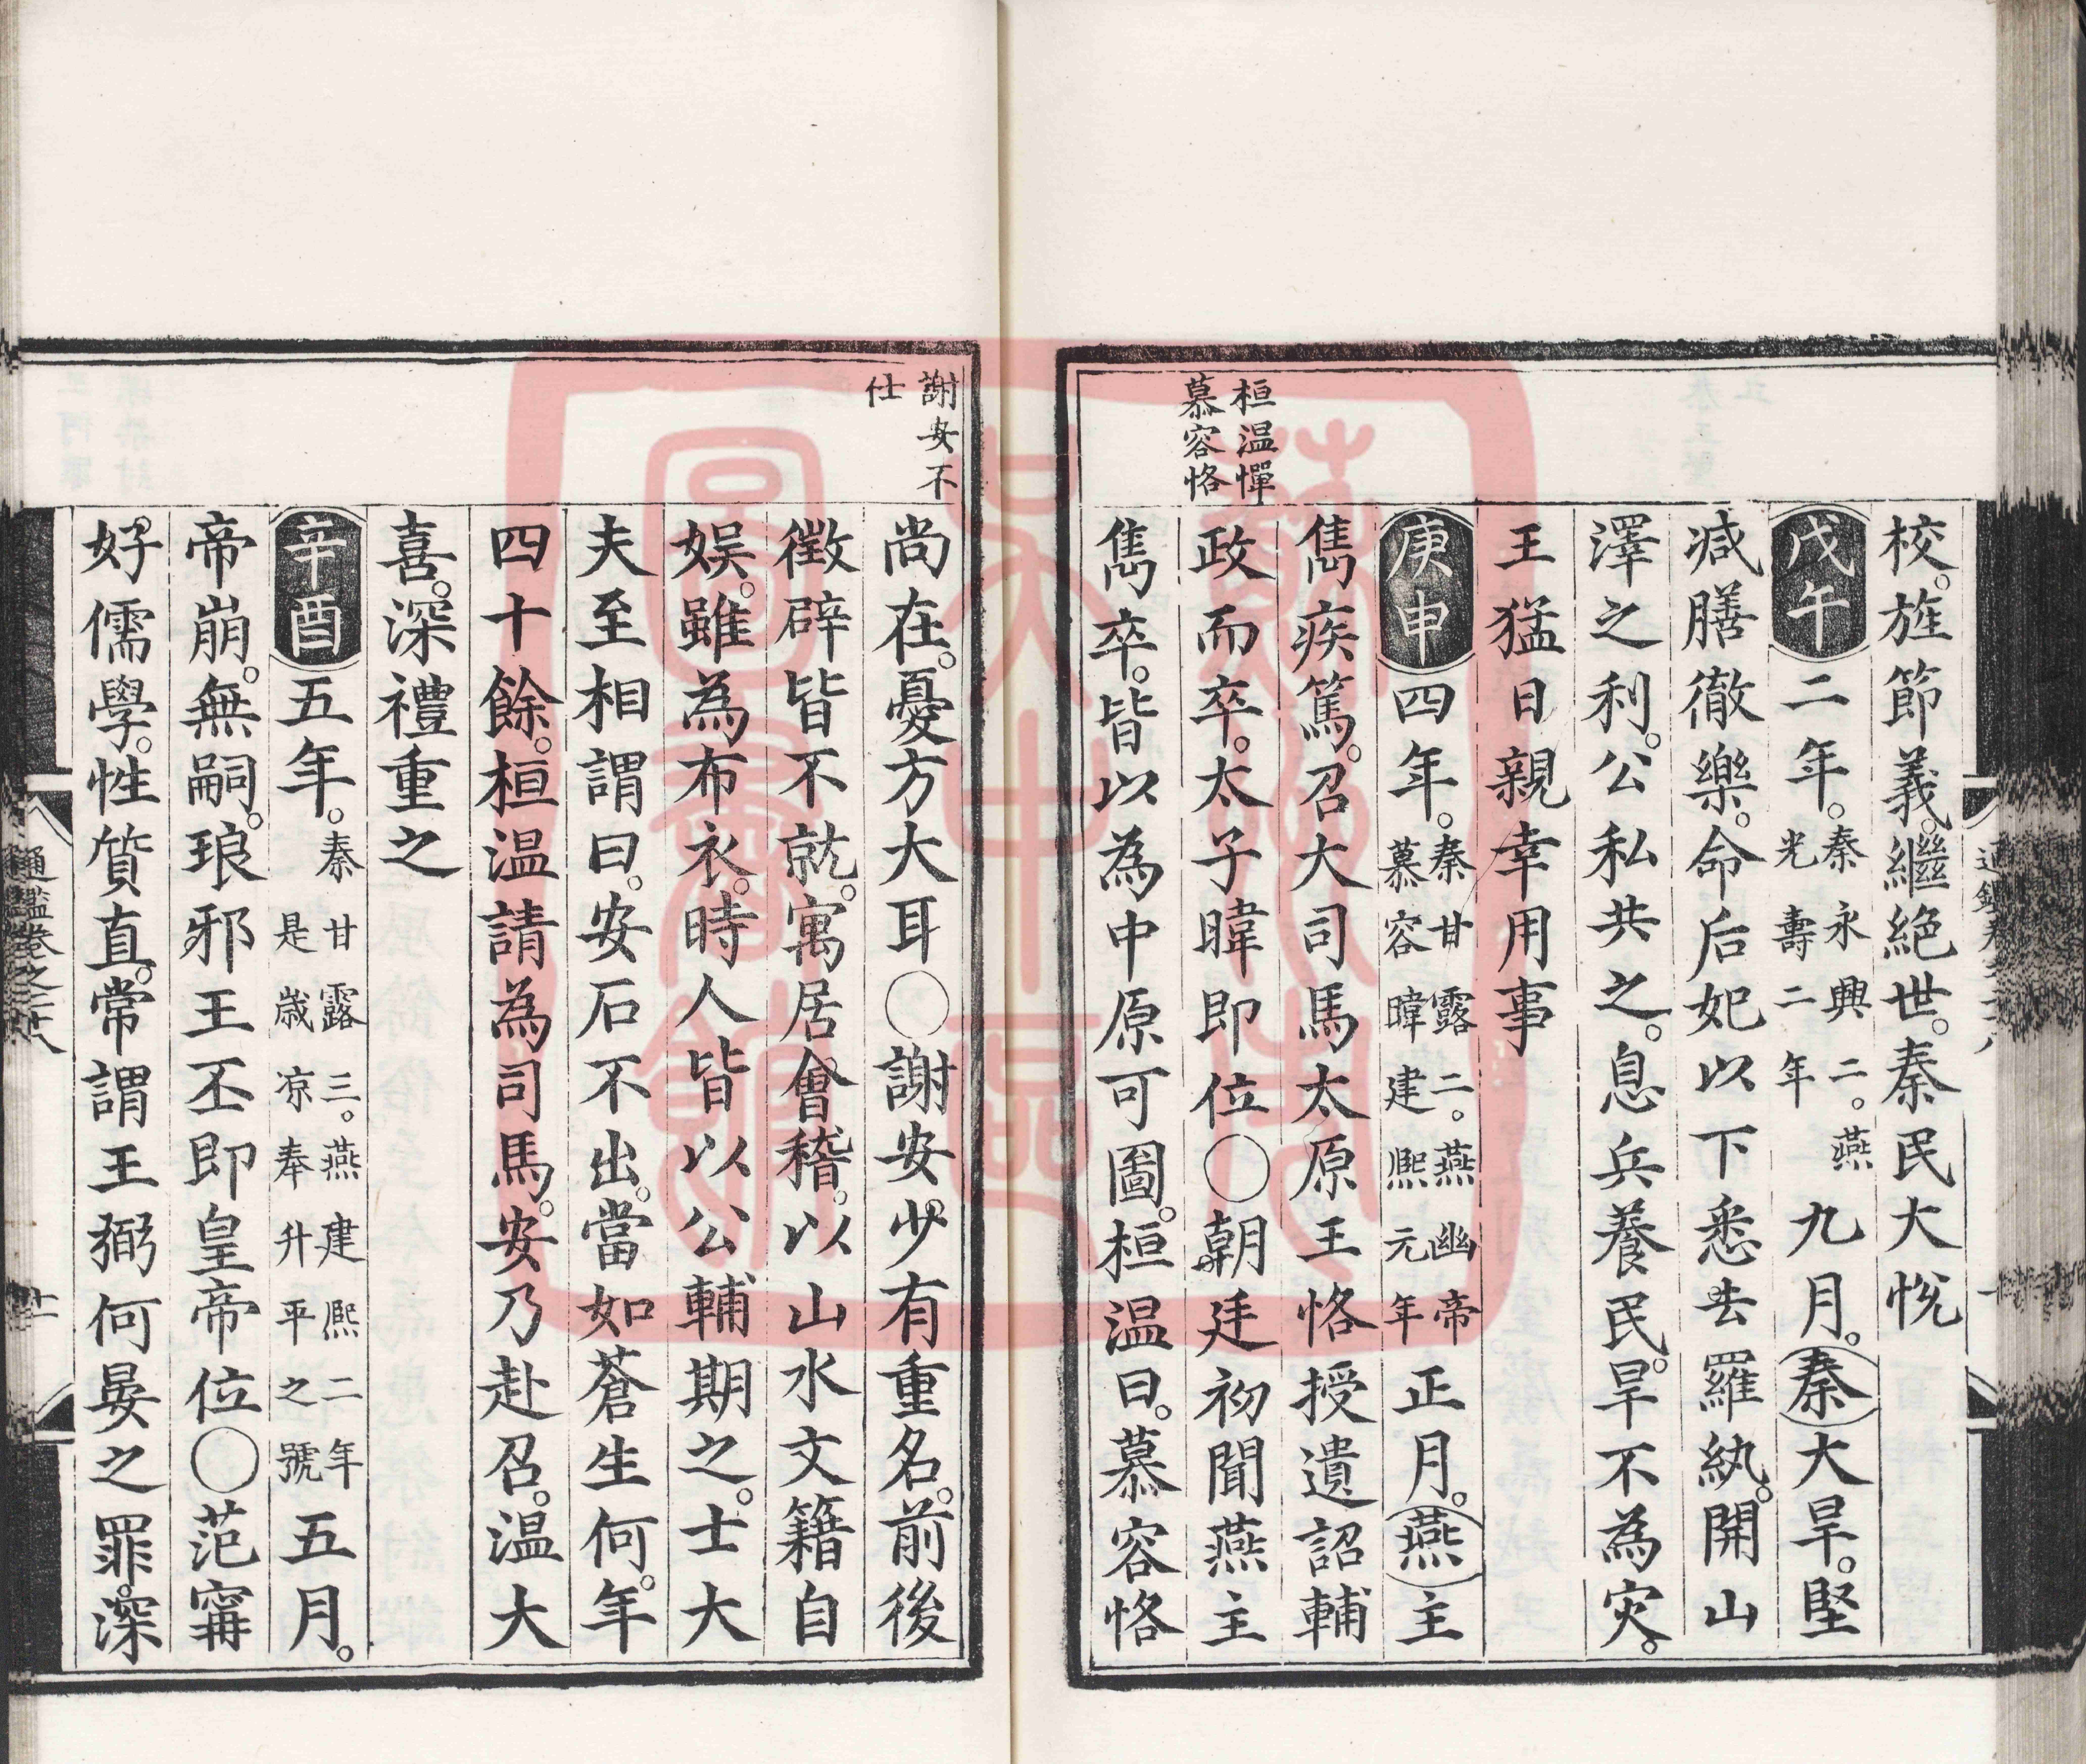 校。旌節義。繼絕世。秦民大悅
戊午二年。秦永興二。燕光壽二年九月。秦大旱。堅
減膳徹樂。命后妃以下悉去羅紈。開山
澤之利。公私共之。息兵養民。旱不為灾。
王猛日親幸用事
庚申四年。秦甘露二。燕幽帝慕容暐建熙元年正月。燕主
儁疾篤。召大司馬太原王恪授遺詔輔
政而卒。太子暐即位○朝廷初聞燕主
儁卒。皆以為中原可圖。桓温曰。慕容恪
桓温憚
慕容恪
尚在。憂方大耳○謝安少有重名。前後
徵辟皆不就。寓居會稽。以山水文籍自
娱。雖為布衣。時人皆以公輔期之。士大
夫至相謂曰。安石不出。當如蒼生何。年
四十餘。桓温請為司馬。安乃赴召。温大
喜。深禮重之
辛酉五年。秦甘露三。燕建熙二年是歳凉奉升平之號五月。
帝崩。無嗣。琅邪王丕即皇帝位○范甯
好儒學。性質直。常謂王弼何晏之罪。深
謝安不
仕
通鑑卷之二十八